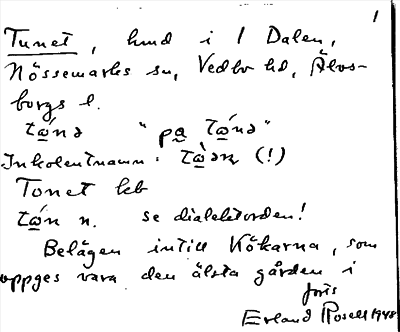 1
Tunet, hmd i 1 Dalen,
Nössemarks sn, Vedbo hd, Älvs-
borgs l.
tώnə "pa tώnə"
Inkolentnamn: (!)
Tonet leb
tώn n. se dialektorden!
Belägen intill Kökarna, som
uppges vara den älsta gården i
Erland Rosell 1948